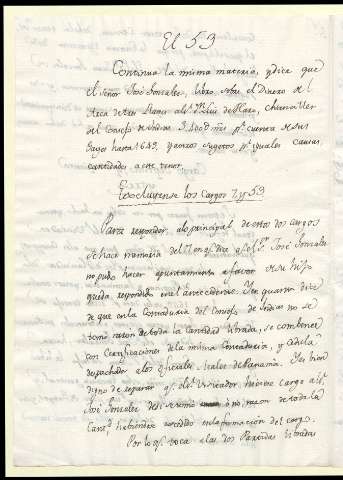 El 59
Continua la misma materia, y dice que
el Señor José Gonzalez, libro sobre el Dinero del
Arca de tres llaves al Sr. Dn. Luis de Plaza, chanciller
del Consejo de Indias 3.400 ds. mrs. pr. cuenta de sus
Gages hasta 1649, y a otros sugetos pr. iguales causas,
cantidades a este tenor.
Exclúyense los Cargos 7 y 59
Para responder, a lo principal de estos dos cargos
se hace memoria del 7 en qe. dice qe. el Sr. Dn. José Gonzalez
no pudo hacer apuntamiento a favor de su hijo
queda respondido en el antecedente. Y en quanto dice
de que en la Contaduria del Consejo de Indias no se
tomó razon de toda la Cantidad librada, se combence
con Certificaciones de la misma Contaduria, y Cedula
despachada a los oficiales reales de Panamá. Y es bien
digno de reparar qe. el Sr. Visitador, hiciese cargo al Sr.
José Gonzalez de si se tomó ó no, razon de toda la
Cantd. habiendose excedido en la formacion del cargo.
Por lo qe. toca a las dos Partidas libradas